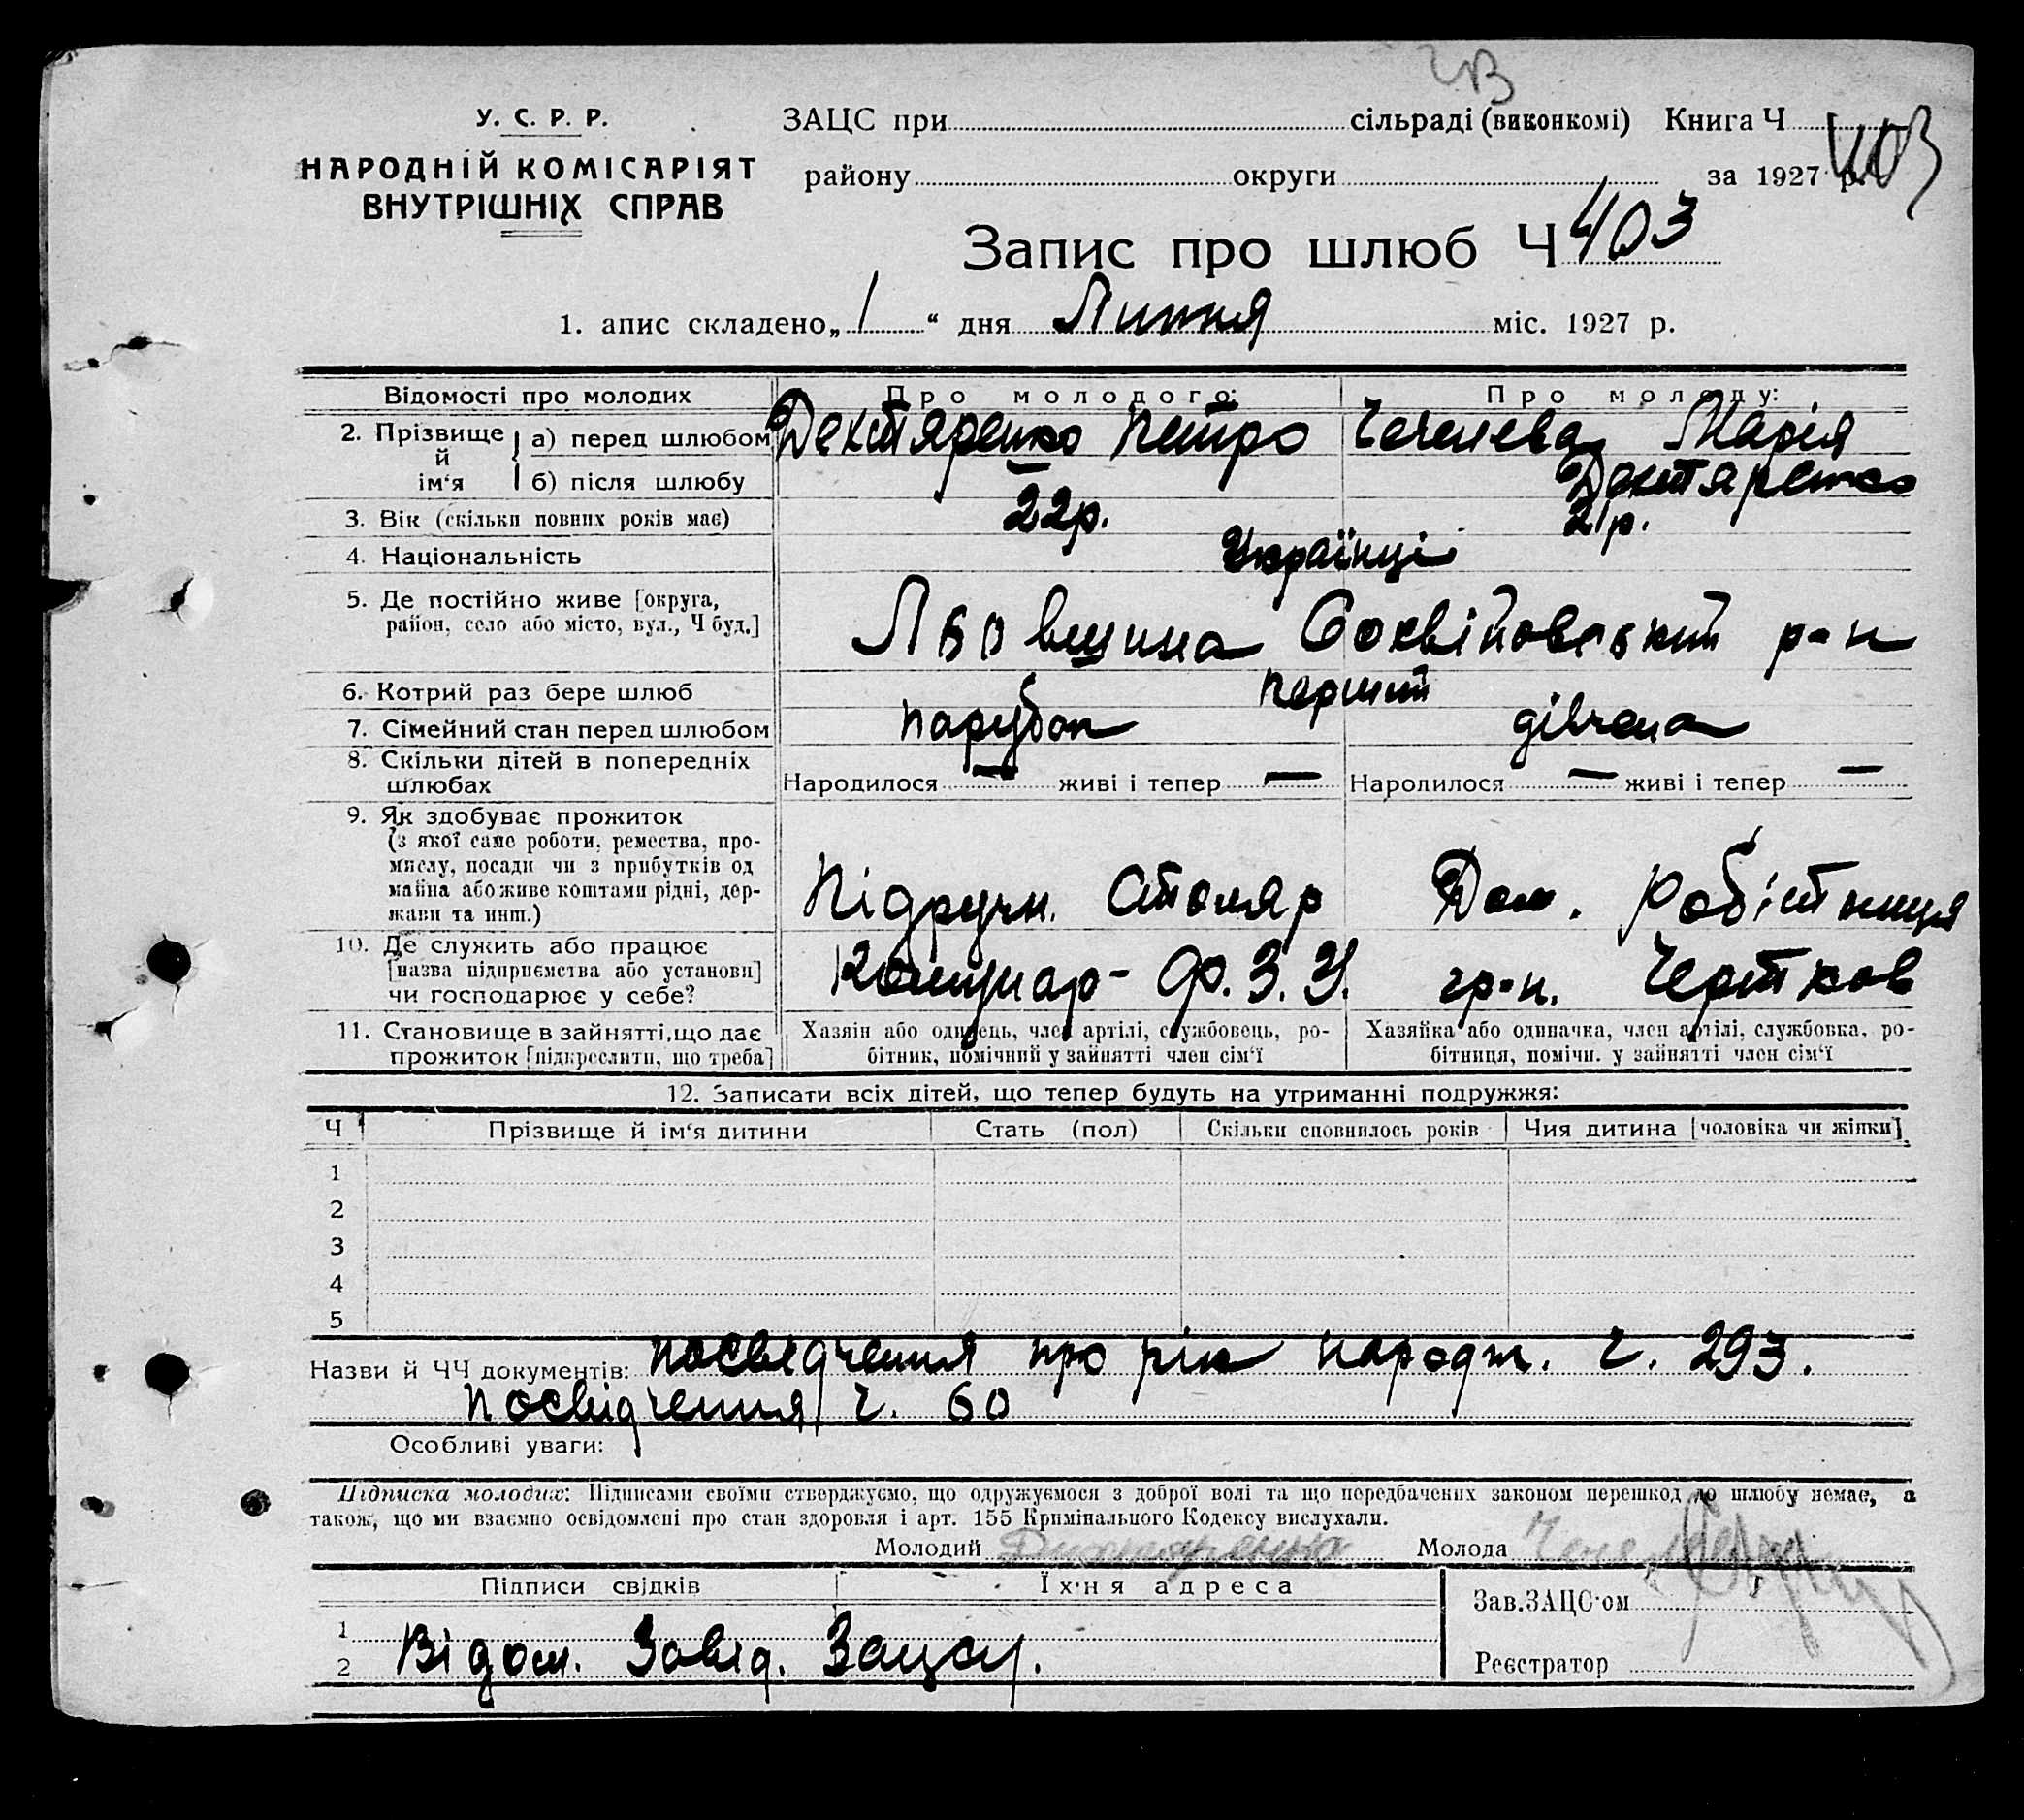 ЧВ
У. С. Р. Р.
НАРОДНІЙ КОМІСАРІЯТ
ВНУТРІШНІХ СПРАВ
ЗАЦС при сільраді (виконкомі) Книга Ч
403
району округи за 1927 р.
Запис про шлюб Ч 403
1. апис складено „1“ дня Липня міс. 1927 р.
Відомості про молодих
Про молодого:
Про молоду:
2. Прізвище й ім‘я
а) перед шлюбом
Дехтяренко Петро
Марія
б) після шлюбу
Дехтяренко
3. Вік (скільки повних років має)
22р.
21р.
4. Національність
Українці
5. Де постійно живе [округа,
район, село або місто, вул., Ч буд.]
р-н
6. Котрий раз бере шлюб
перший
7. Сімейний стан перед шлюбом
парубок
дівчена
8. Скільки дітей в попередніх
шлюбах
Народилося — живі і тепер —
Народилося — живі і тепер —
9. Як здобуває прожиток
(з якої саме роботи, ремества, про-
мислу, посади чи з прибутків од
майна або живе коштами рідні, дер-
жави та инш.)
Підручн. Столяр
Дом. робітниця
10. Де служить або працює
[назва підприємства або установи]
чи господарює у себе?
Комунар- Ф.З.У.
гр-н. Чертков
11. Становище в зайнятті, що дає
прожиток [підкреслити, що треба]
Хазяін або одинець, член артілі, службовець, ро-
бітник, помічний у зайнятті член сім‘ї
Хазяйка або одиначка, член артілі, службовка, ро-
бітниця, помічн. у зайнятті член сім‘ї
12. Записати всіх дітей, що тепер будуть на утриманні подружжя:
Ч Прізвище й ім‘я дитини Стать (пол) Скільки сповнилось років Чия дитина [чоловіка чи жінки]
1
2
3
4
5
Назви й ЧЧ документів: посвідчення про рік народж. ч. 293.
посвідчення ч. 60
Особливі уваги:
Підписка молодих: Підписами своїми стверджуємо, що одружуємося з доброї волі та що передбачених законом перешкод до шлюбу немає, а
також, що ми взаємно освідомлені про стан здоровля і арт. 155 Кримінального Кодексу вислухали.
Молодий
Молода
Підписи свідків
Їхня адреса
Зав.ЗАЦС‘ом
1
2 Відом. Завід. Зацсу.
Реєстратор